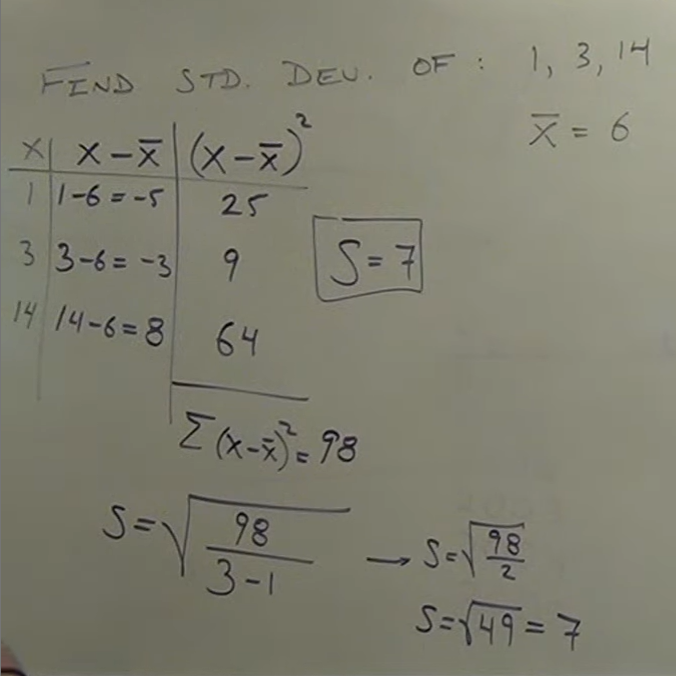 FIND STD. DEV. OF: 1, 3, 14
x̅ = 6
x | x - x̅ | (x - x̅)²
1 | 1-6 = -5 | 25
3 | 3-6 = -3 | 9
14 | 14-6 = 8 | 64
S = 7
Σ(x-x̅)² = 98
S = √(98/(3-1)) → S = √(98/2)
S = √49 = 7